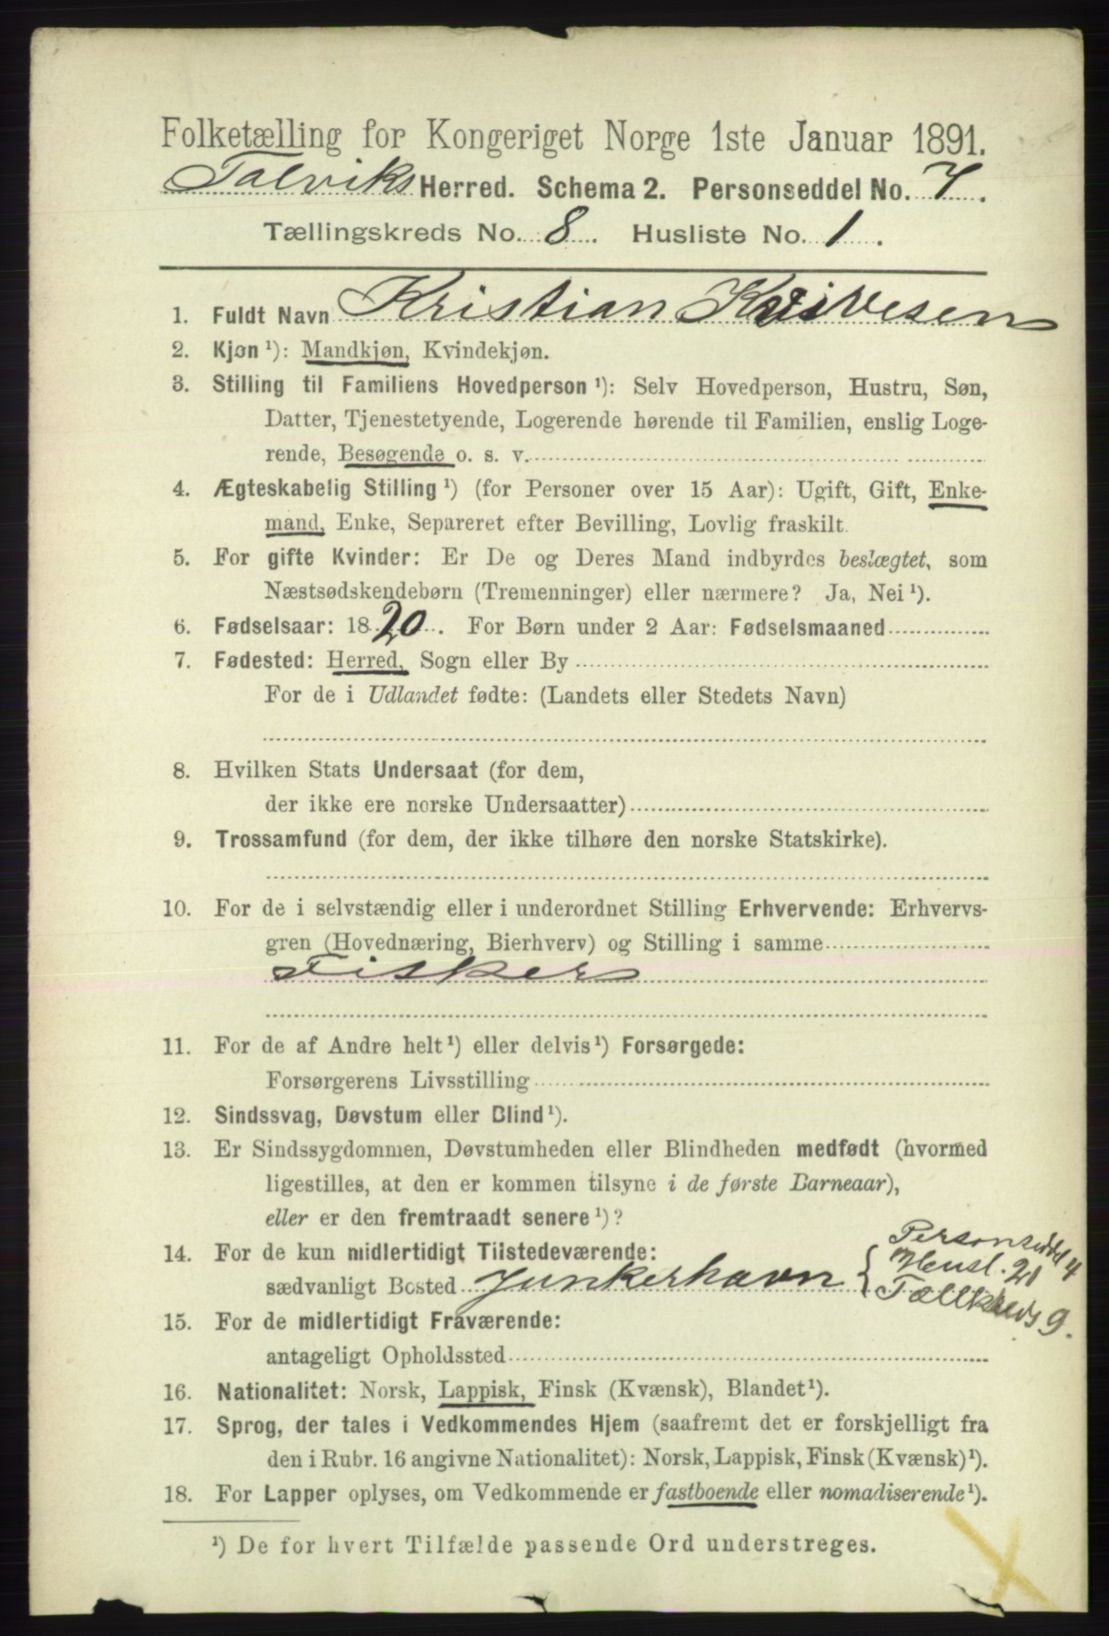 Folketælling for Kongeriget Norge 1ste Januar 1891.
Talviks Herred. Schema 2. Personseddel No. 7.
Tællingskreds No. 8. Husliste No. 1.
1. Fuldt Navn Kristian
2. Kjøn ¹): Mandkjøn, Kvindekjøn.
3. Stilling til Familiens Hovedperson ¹): Selv Hovedperson, Hustru, Søn,
Datter, Tjenestetyende, Logerende hørende til Familien, enslig Loge-
rende, Besøgende o. s. v.
4. Ægteskabelig Stilling ¹) (for Personer over 15 Aar): Ugift, Gift, Enke-
mand, Enke, Separeret efter Bevilling, Lovlig fraskilt.
5. For gifte Kvinder: Er De og Deres Mand indbyrdes beslægtet, som
Næstsødskendebørn (Tremenninger) eller nærmere? Ja, Nei ¹).
6. Fødselsaar: 1820. For Børn under 2 Aar: Fødselsmaaned
7. Fødested: Herred, Sogn eller By
For de i Udlandet fødte: (Landets eller Stedets Navn)
8. Hvilken Stats Undersaat (for dem,
der ikke ere norske Undersaatter)
9. Trossamfund (for dem, der ikke tilhøre den norske Statskirke).
10. For de i selvstændig eller i underordnet Stilling Erhvervende: Erhvervs-
gren (Hovednæring, Bierhverv) og Stilling i samme
Fisker
11. For de af Andre helt ¹) eller delvis ¹) Forsørgede:
Forsørgerens Livsstilling
12. Sindssvag, Døvstum eller Blind ¹).
13. Er Sindssygdommen, Døvstumheden eller Blindheden medfødt (hvormed
ligestilles, at den er kommen tilsyne i de første Barneaar),
eller er den fremtraadt senere ¹)?
14. For de kun midlertidigt Tilstedeværende:
sædvanligt Bosted Junkerhavn { Personseddel 4
Husl. 21
Tællkreds 9.
15. For de midlertidigt Fraværende:
antageligt Opholdssted
16. Nationalitet: Norsk, Lappisk, Finsk (Kvænsk), Blandet ¹).
17. Sprog, der tales i Vedkommendes Hjem (saafremt det er forskjelligt fra
den i Rubr. 16 angivne Nationalitet): Norsk, Lappisk, Finsk (Kvænsk) ¹).
18. For Lapper oplyses, om Vedkommende er fastboende eller nomadiserende ¹).
¹) De for hvert Tilfælde passende Ord understreges.